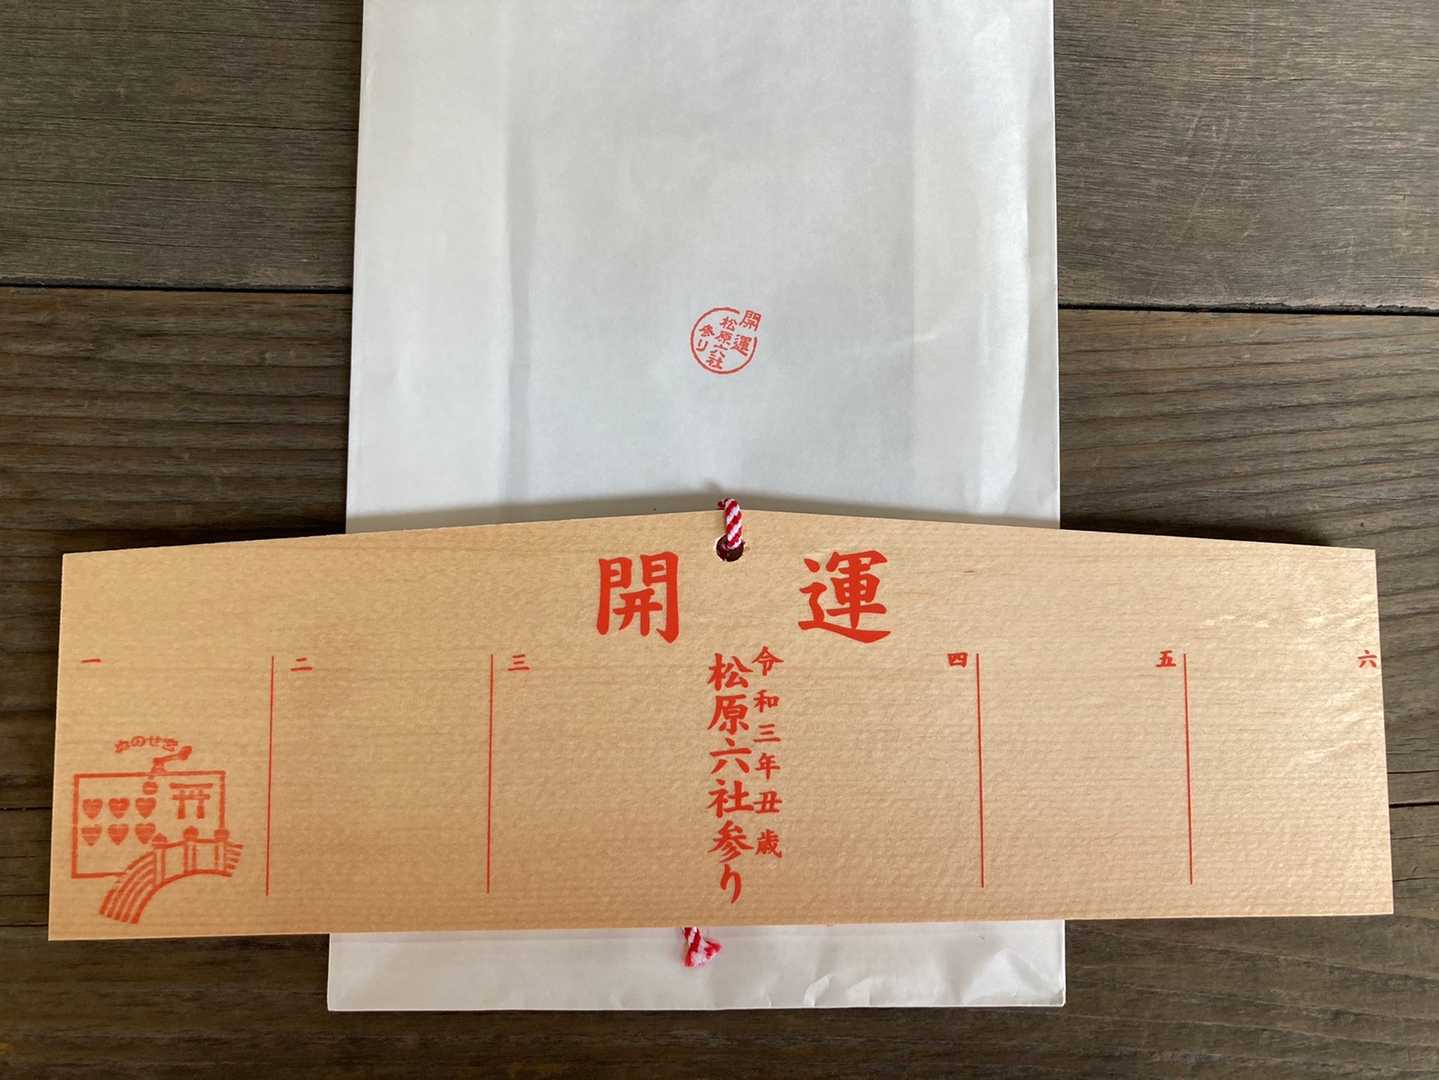 開運
松原六社
参り
開運
一
二
三
令和三年丑歳
松原六社参り
四
五
六